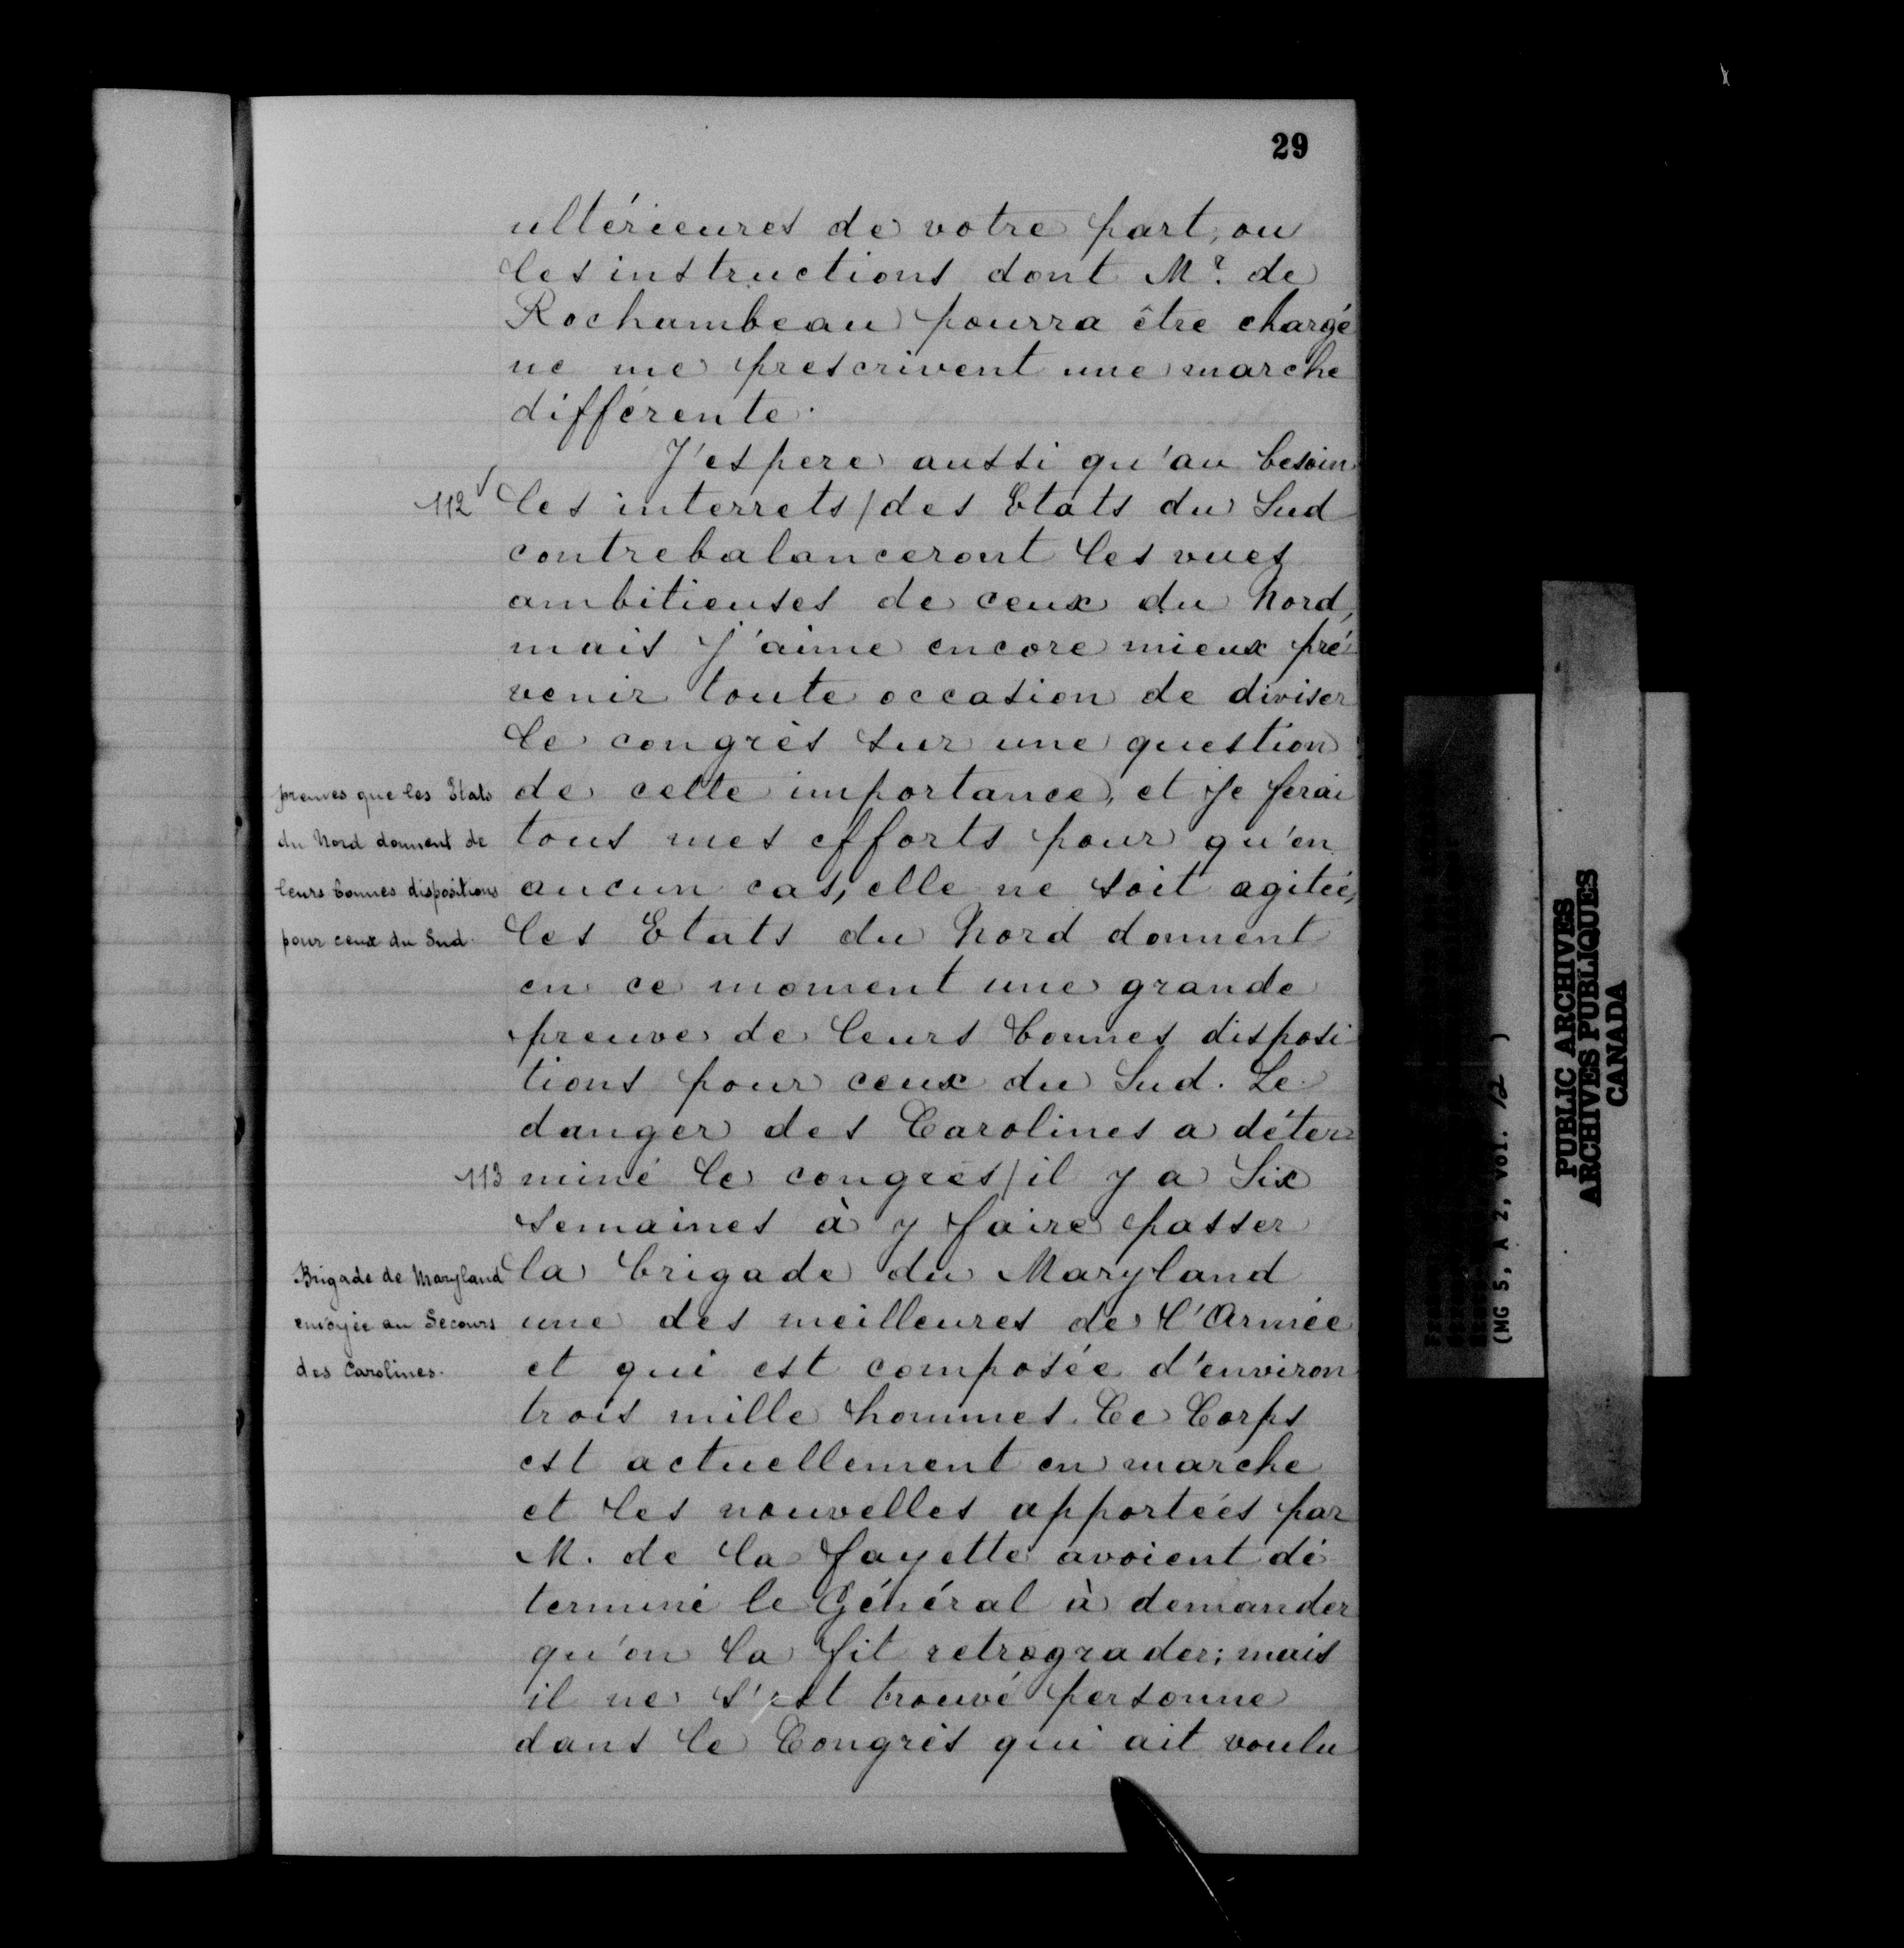 29
ultérieures de votre part, ou
les instructions dont Mr. de
Rochambeau pourra être chargé
ne me prescrivent une marche
différente.
J'espere aussi qu'au besoin
112 les interrets/des Etats du Sud
contrebalanceront les vues
ambitieuses de ceux du Nord,
mais j'aime encore mieux pré
venir toute occasion de diviser
le congrès sur une question
de cette importance, et je ferai
tous mes efforts pour qu'en
aucun cas, elle ne soit agitée,
les Etats du Nord donnent
en ce moment une grande
preuve de leurs bonnes disposi
tions pour ceux du Sud. Le
danger des Carolines a déter
113 miné le congrès/il y a Six
semaines à y faire passer
la brigade du Maryland
une des meilleures de l'Armée
et qui est composée d'environ
trois mille hommes. Ce Corps
est actuellement en marche
et les nouvelles apportées par
M. de la fayette avoient dé
terminé le Général à demander
qu'on la fit retrograder; mais
il ne s'est trouvé personne
dans le Congrès qui ait voulu
preuves que les Etats
du Nord donnent de
leurs bonnes dispositions
pour ceux du Sud.
Brigade de Maryland
envoyée au Secours
des Carolines.
(MG 5, A 2, vol. 12 )
PUBLIC ARCHIVES
ARCHIVES PUBLIQUES
CANADA